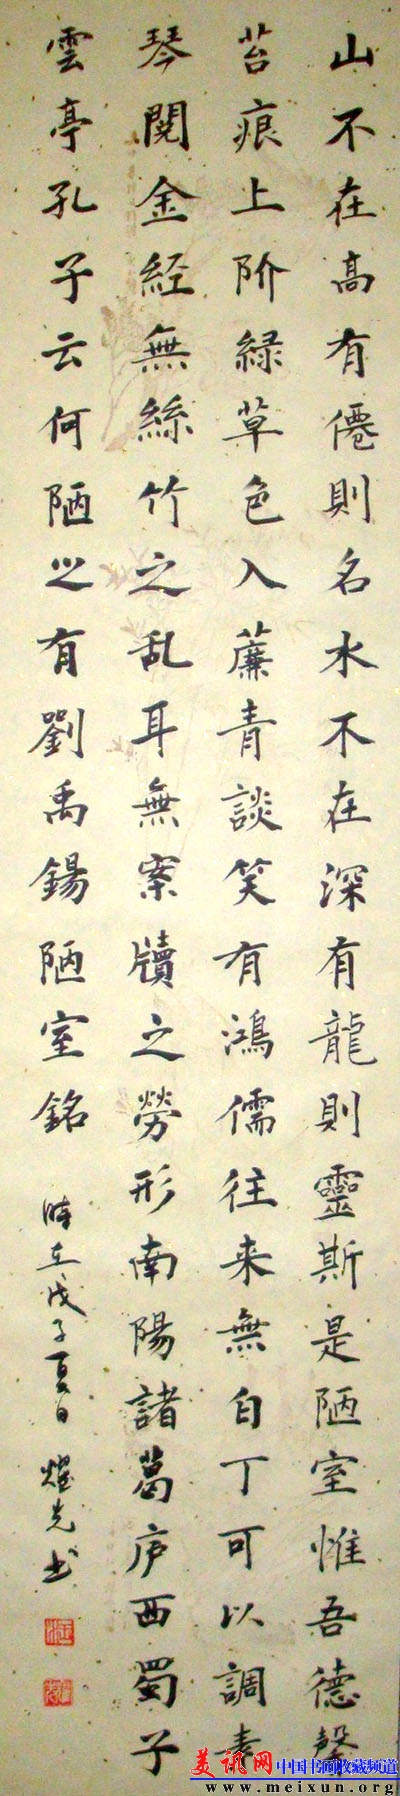 山不在高有僊則名水不在深有龍則靈斯是陋室惟吾德馨
苔痕上阶緑草色入薕青談笑有鴻儒往来無白丁可以調素
琴閲金経無絲竹之乱耳無案牘之勞形南陽諸葛庐西蜀子
雲亭孔子云何陋之有劉禹錫陋室銘 時在戊子夏日 燿先书
美讯网 中国书画收藏频道
www.meixun.org